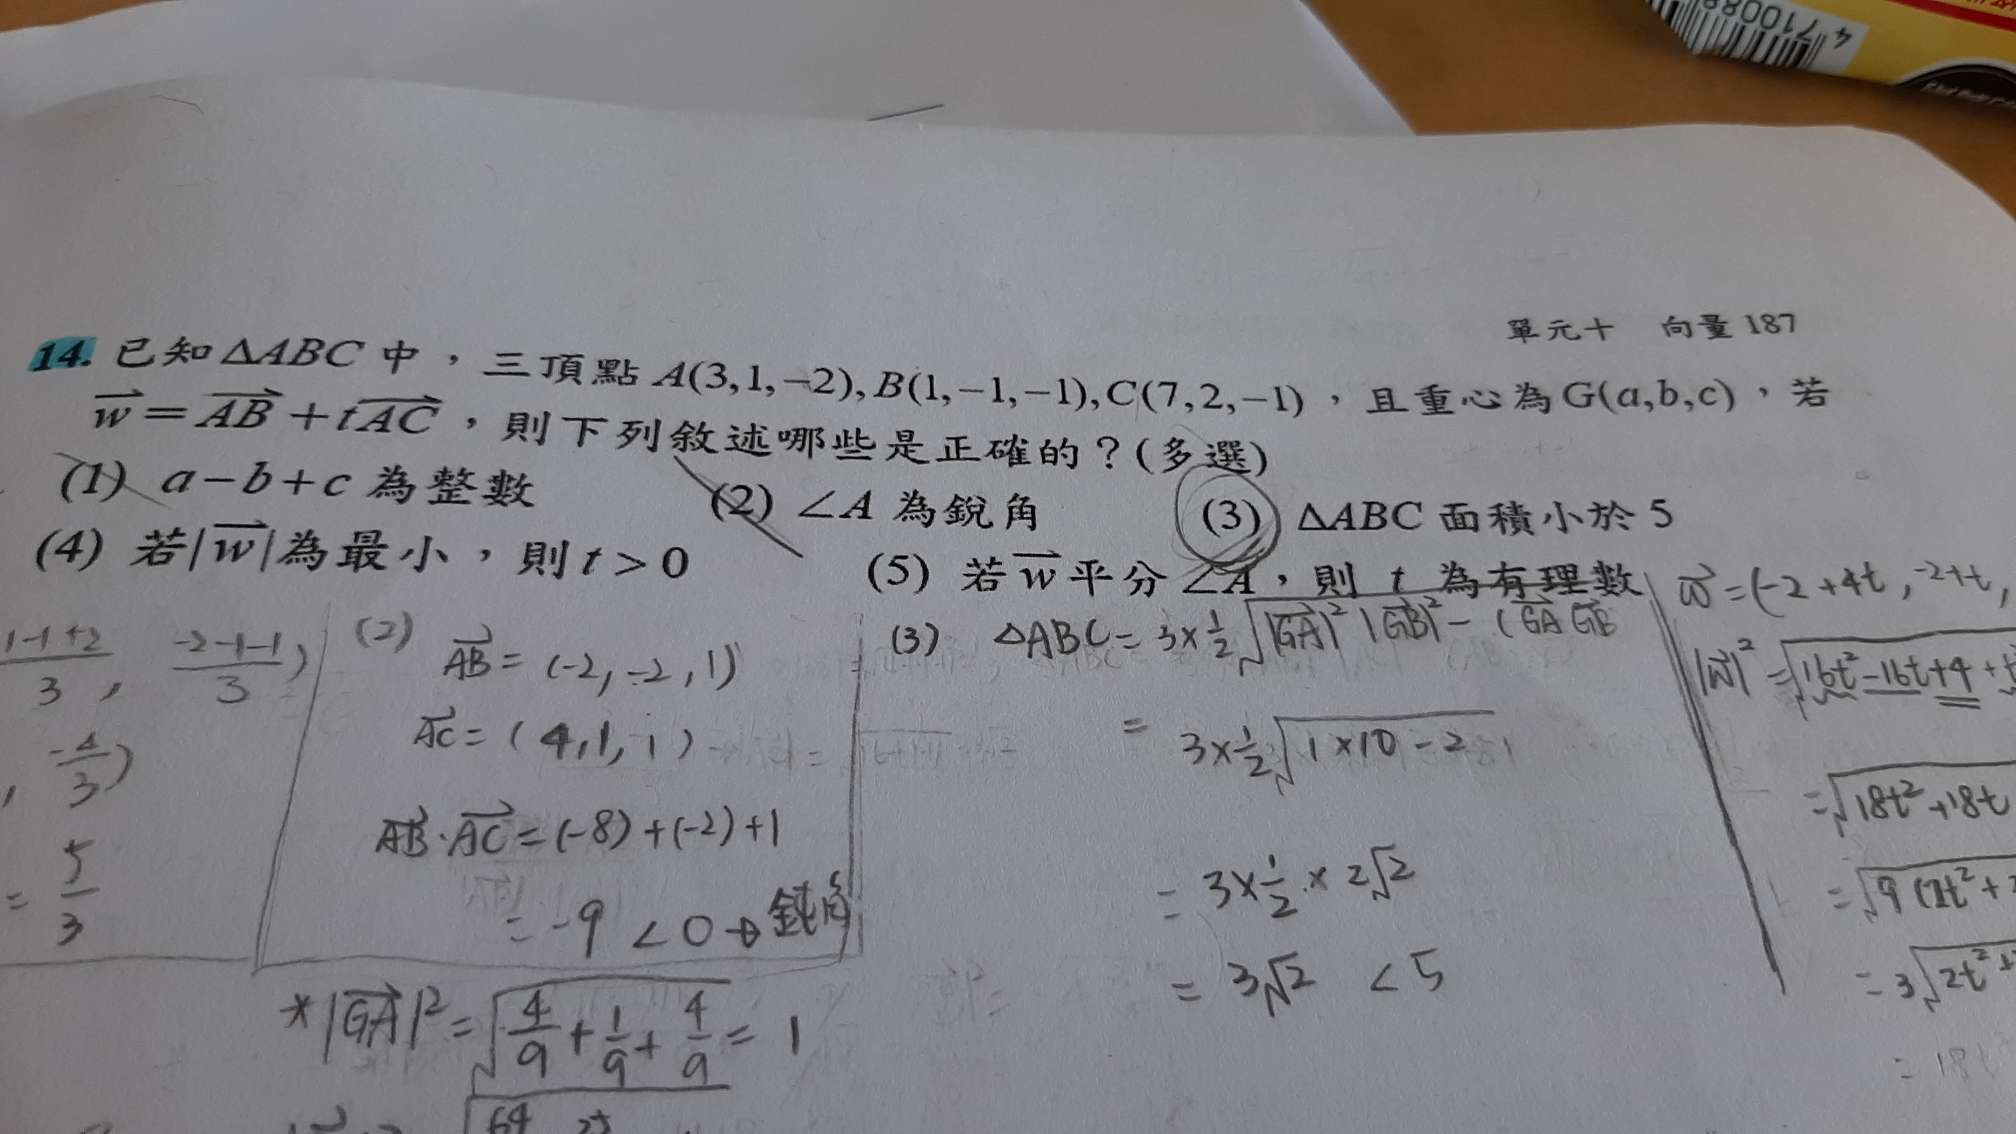 471008
單元十 向量 187
14. 已知△ABC中,三頂點A(3,1,−2),B(1,−1,−1),C(7,2,−1),且重心為G(a,b,c),若
w⃗=AB⃗+tAC⃗,則下列敘述哪些是正確的?(多選)
(1) a−b+c為整數 (2) ∠A為銳角 (3) △ABC面積小於5
(4) 若|w⃗|為最小,則t>0 (5) 若w⃗平分∠A,則 t 為有理數
(1-1+2)/3, (-2-1-1)/3)
, -4/3)
= 5/3
(2) AB⃗=(-2,-2,1)
AC⃗=(4,1,1)
AB⃗·AC⃗=(-8)+(-2)+1
= -9 <0→鈍角
(3) △ABC=3×1/2√|GA⃗|²|GB⃗|²-(GA⃗ GB⃗
= 3×1/2√1×10-2
= 3×1/2×2√2
= 3√2 <5
w⃗=(-2+4t, -2+t,
|w⃗|²=√16t²-16t+4+
=√18t²+18t
=√9(2t²+
=3√2t²+
= 18
*|GA⃗|²=√4/9+1/9+4/9=1
√64